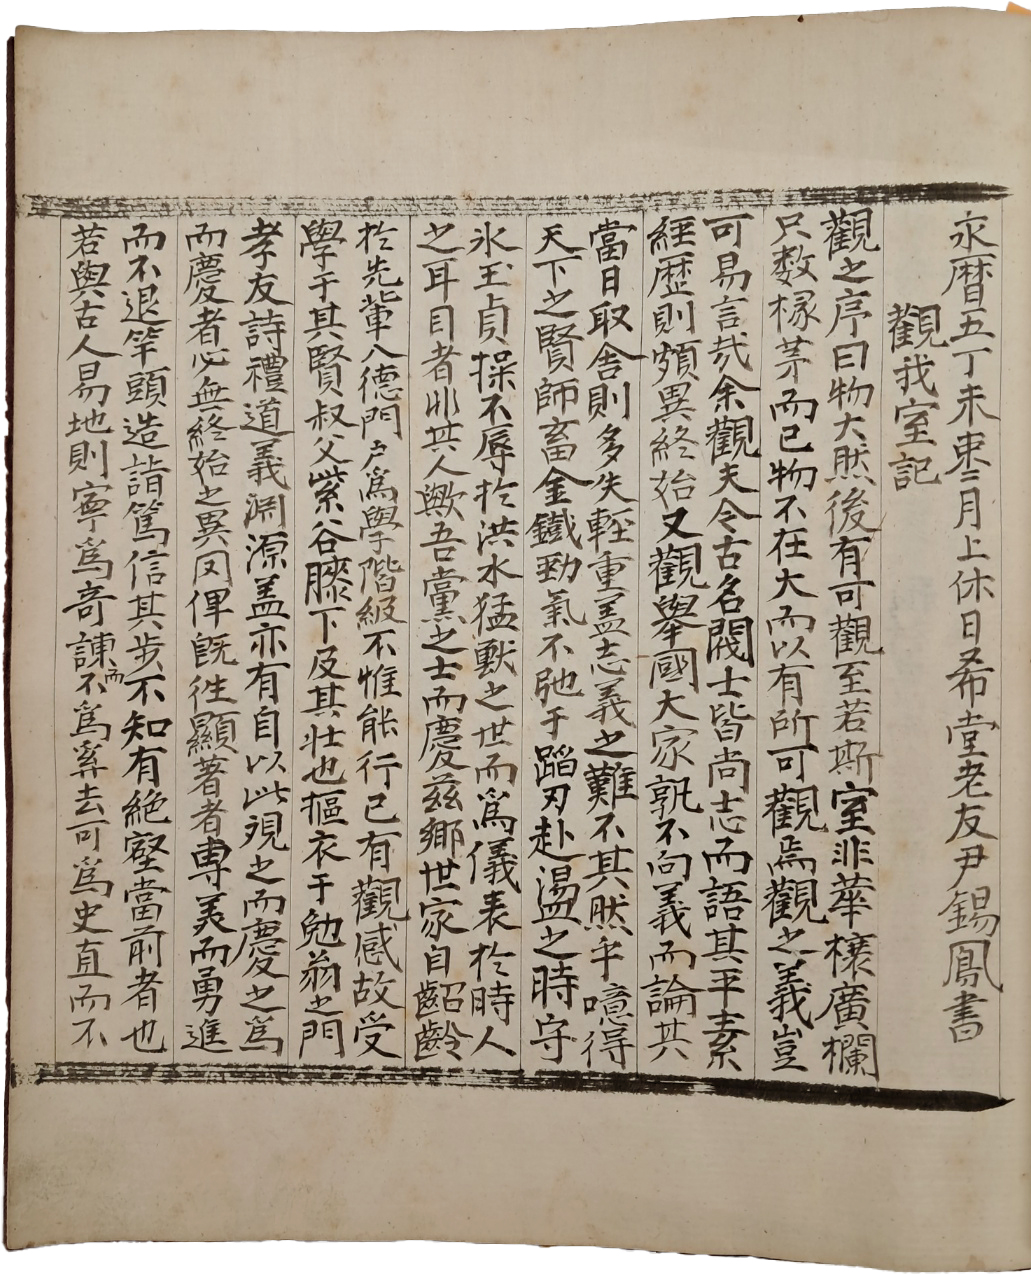 永曆五丁未東三月上休日希堂老友尹錫鳳書
觀我室記
觀之序曰物大然後有可觀至若斯室非華榱廣欄
只数椽茅而已物不在大而以有所可觀焉觀之義豈
可易言哉余觀夫今古名閥士皆尚志而語其平素
經歷則頗異終始又觀擧國大家孰不向義而論其
當日取舍則多失輕重盖志義之難不其然乎噫得
天下之賢師畜金鐵勁氣不弛于蹈刃赴湯之時守
氷玉貞操不辱於洪水猛獸之世而爲儀表於時人
之耳目者非其人歟吾黨之士而慶茲鄉世家自齠齡
於先軰入德門户爲學階級不惟能行已有觀感故受
學于其賢叔父紫谷膝下及其壯也摳衣于勉翁之門
孝友詩禮道義淵源盖亦有自以此現之而慶之爲
而慶者必無終始之異罔俾旣徃顯著者專美而勇進
而不退竿頭造詣篤信其步不知有絶壑當前者也
若與古人易地則寧爲竒諫而不爲奚去可爲史直而不